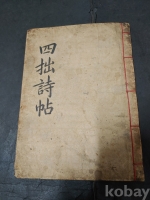 四拙詩帖
kobay